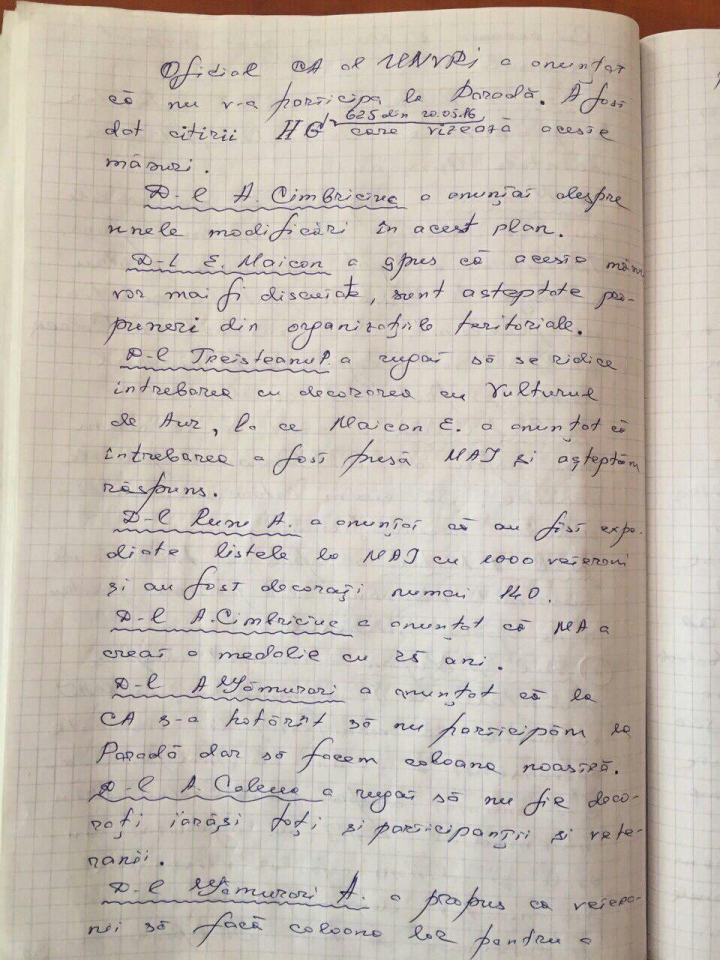 Oficial CA al UNVRI a anunțat
că nu v-a participa la Paradă. A fost
dat citirii HG 625 din 20.05.16 care vizează aceste
măsuri.
D-l A. Cimbriciuc a anunțat despre
unele modificări în acest plan.
D-l E. Maican a spus că aceste măsuri
vor mai fi discutate, sunt așteptate pro-
puneri din organizațiile teritoriale.
D-l Treisteanu P. a rugat să se ridice
întrebarea cu decorarea cu Vulturul
de Aur, la ce Maican E. a anunțat că
întrebarea a fost pusă MAI și așteptăm
răspuns.
D-l Rusu A. a anunțat că au fost expe-
diate listele la MAI cu 1000 veterani
și au fost decorați numai 140.
D-l A. Cimbriciuc a anunțat că MA a
creat o medalie cu 25 ani.
D-l A a anunțat că la
CA s-a hotărît să nu participăm la
Paradă dar să facem coloana noastră.
D-l A. a rugat să nu fie deco-
rați iarăși toți și participanții și vete-
ranii.
D-l A. a propus ca vetera-
nii să facă coloana lor pentru a